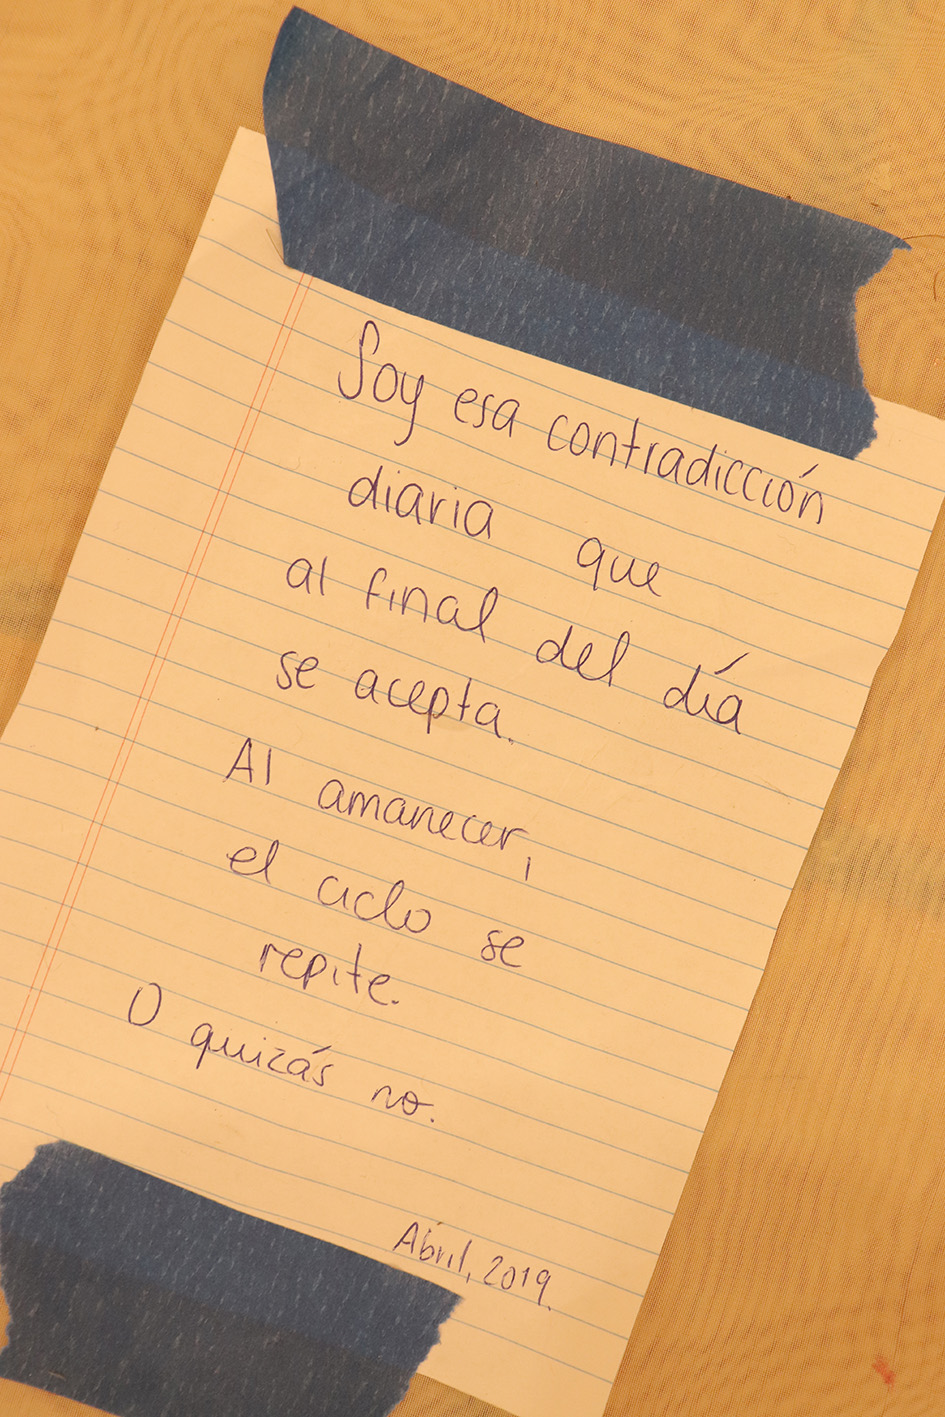 Soy esa contradicción
diaria que
al final del día
se acepta.
Al amanecer,
el ciclo se
repite.
O quizás no.
Abril, 2019.